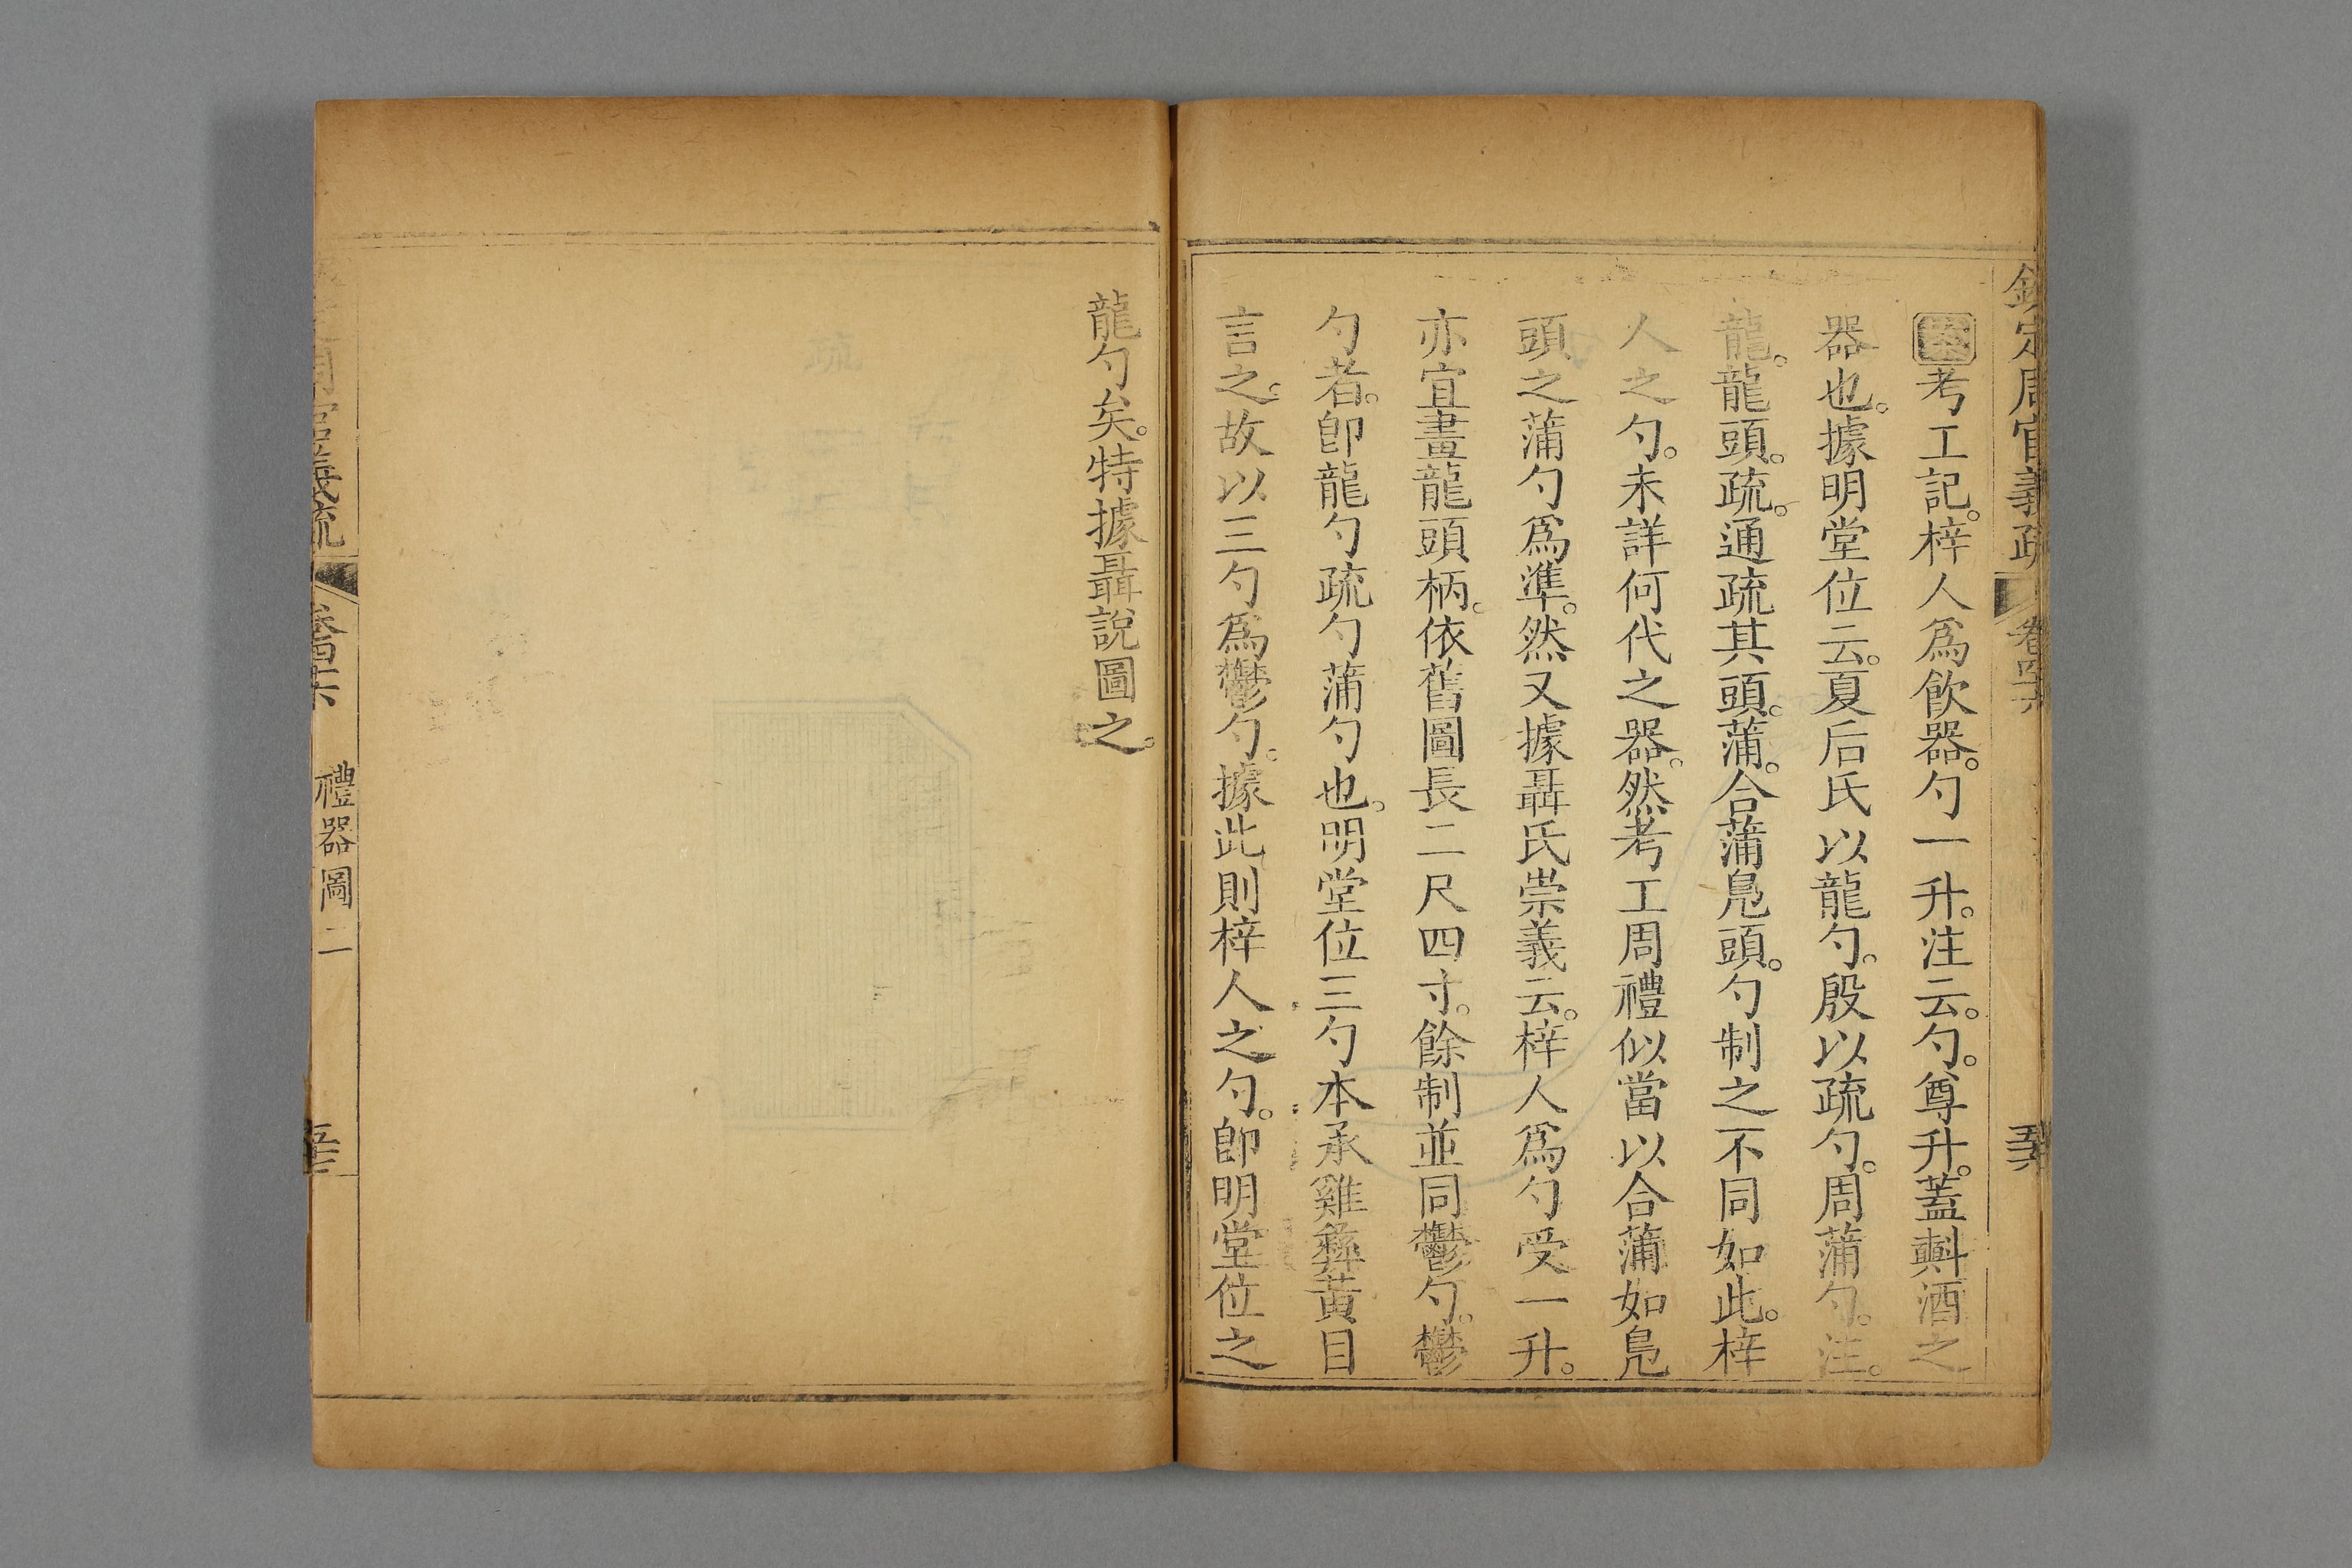 欽定周官義疏 卷四十六
考工記。梓人爲飮器。勺一升。注云。勺。尊升。蓋㪺酒之
器也。據明堂位云。夏后氏以龍勺。殷以疏勺。周蒲勺。注。
龍。龍頭。疏。通疏其頭。蒲。合蒲鳧頭。勺制之不同如此。梓
人之勺。未詳何代之器。然考工周禮似當以合蒲如鳧
頭之蒲勺爲準。然又據聶氏崇義云。梓人爲勺受一升。
亦宜畫龍頭柄。依舊圖長二尺四寸。餘制並同鬱勺。鬱
勺者。卽龍勺疏勺蒲勺也。明堂位三勺本承雞彝黃目
言之。故以三勺爲鬱勺。據此則梓人之勺。卽明堂位之
龍勺矣。特據聶說圖之。
周官義疏 卷四十六 禮器圖二